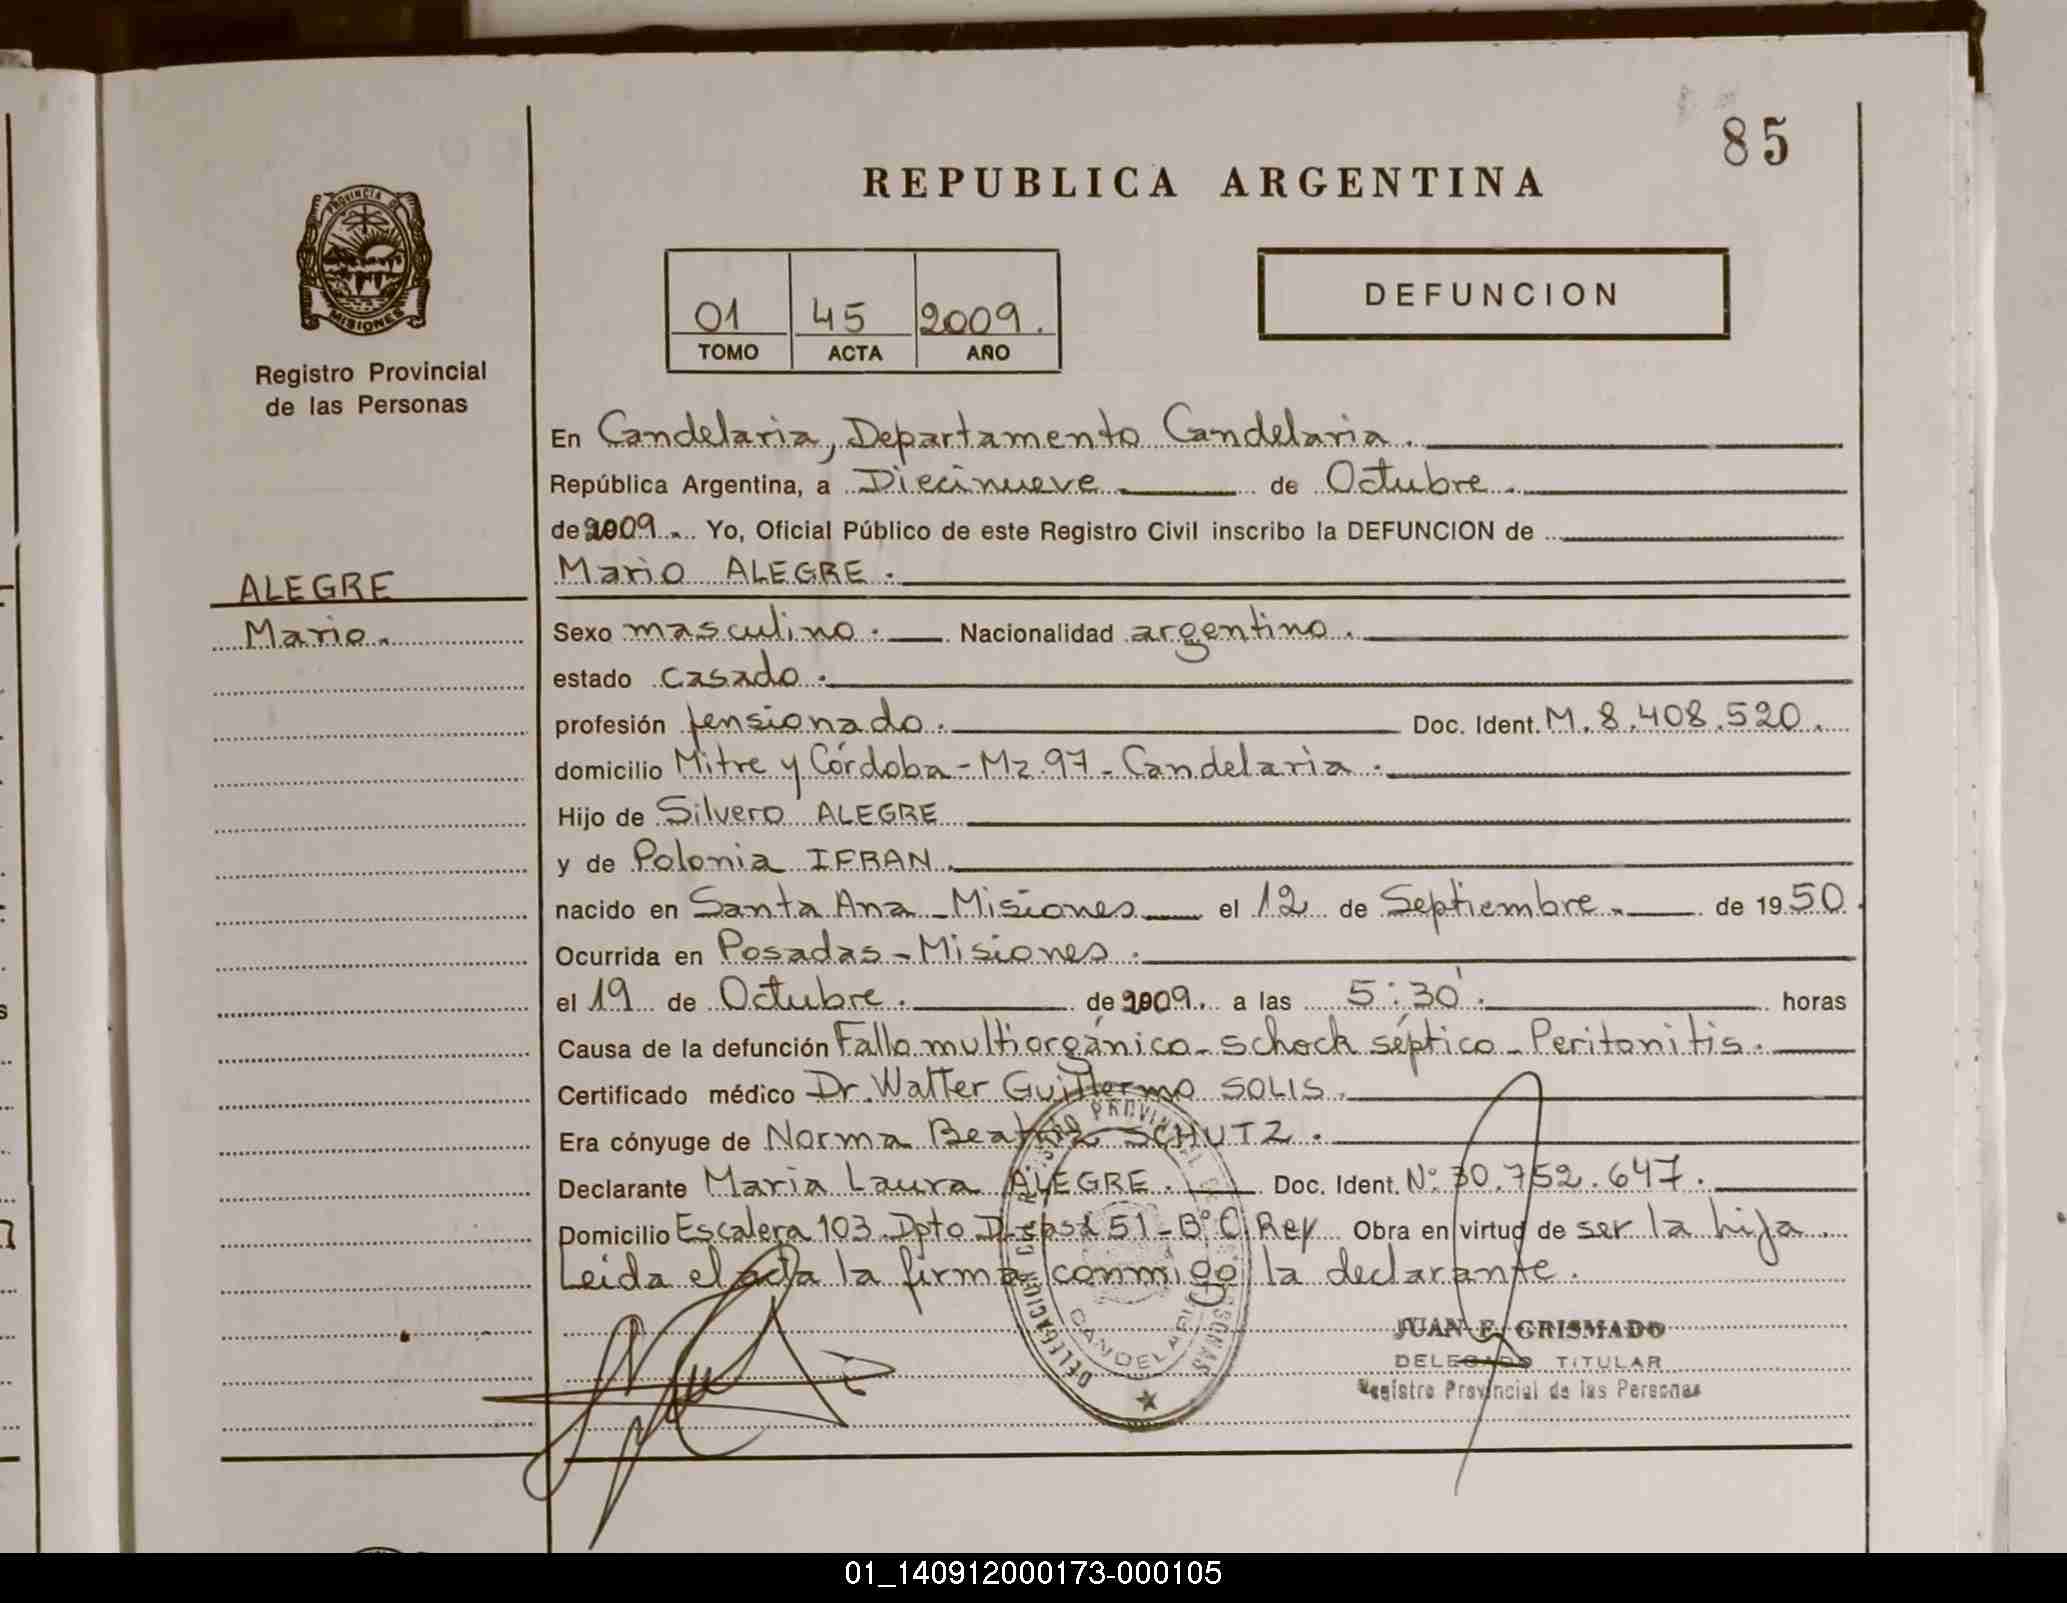 85
REPUBLICA ARGENTINA
PROVINCIA DE
MISIONES
Registro Provincial
de las Personas
01 45 2009.
TOMO ACTA AÑO
DEFUNCION
En Candelaria, Departamento Candelaria.
República Argentina, a Diecinueve de Octubre.
de 2009. Yo, Oficial Público de este Registro Civil inscribo la DEFUNCION de
Mario ALEGRE.
ALEGRE
Mario.
Sexo masculino. Nacionalidad argentino.
estado casado.
profesión pensionado. Doc. Ident. M. 8.408.520.
domicilio Mitre y Córdoba - Mz. 97 - Candelaria.
Hijo de Silvero ALEGRE
y de Polonia IFRAN.
nacido en Santa Ana - Misiones el 12 de Septiembre. de 1950.
Ocurrida en Posadas - Misiones.
el 19 de Octubre. de 2009. a las 5:30'. horas
Causa de la defunción Fallo multiorgánico - schock séptico - Peritonitis.
Certificado médico Dr. Walter Guillermo SOLIS.
Era cónyuge de Norma Beatriz SCHUTZ.
Declarante Maria Laura ALEGRE. Doc. Ident. Nº 30.752.647.
Domicilio Escalera 103 Dpto D casa 51 - Bº C. Rey Obra en virtud de ser la hija.
Leida el acta la firma conmigo la declarante.
DELEGACION DE REGISTRO PROVINCIAL DE LAS PERSONAS
CANDELARIA
JUAN F. GRISMADO
DELEGADO TITULAR
Registro Provincial de las Personas
01_140912000173-000105